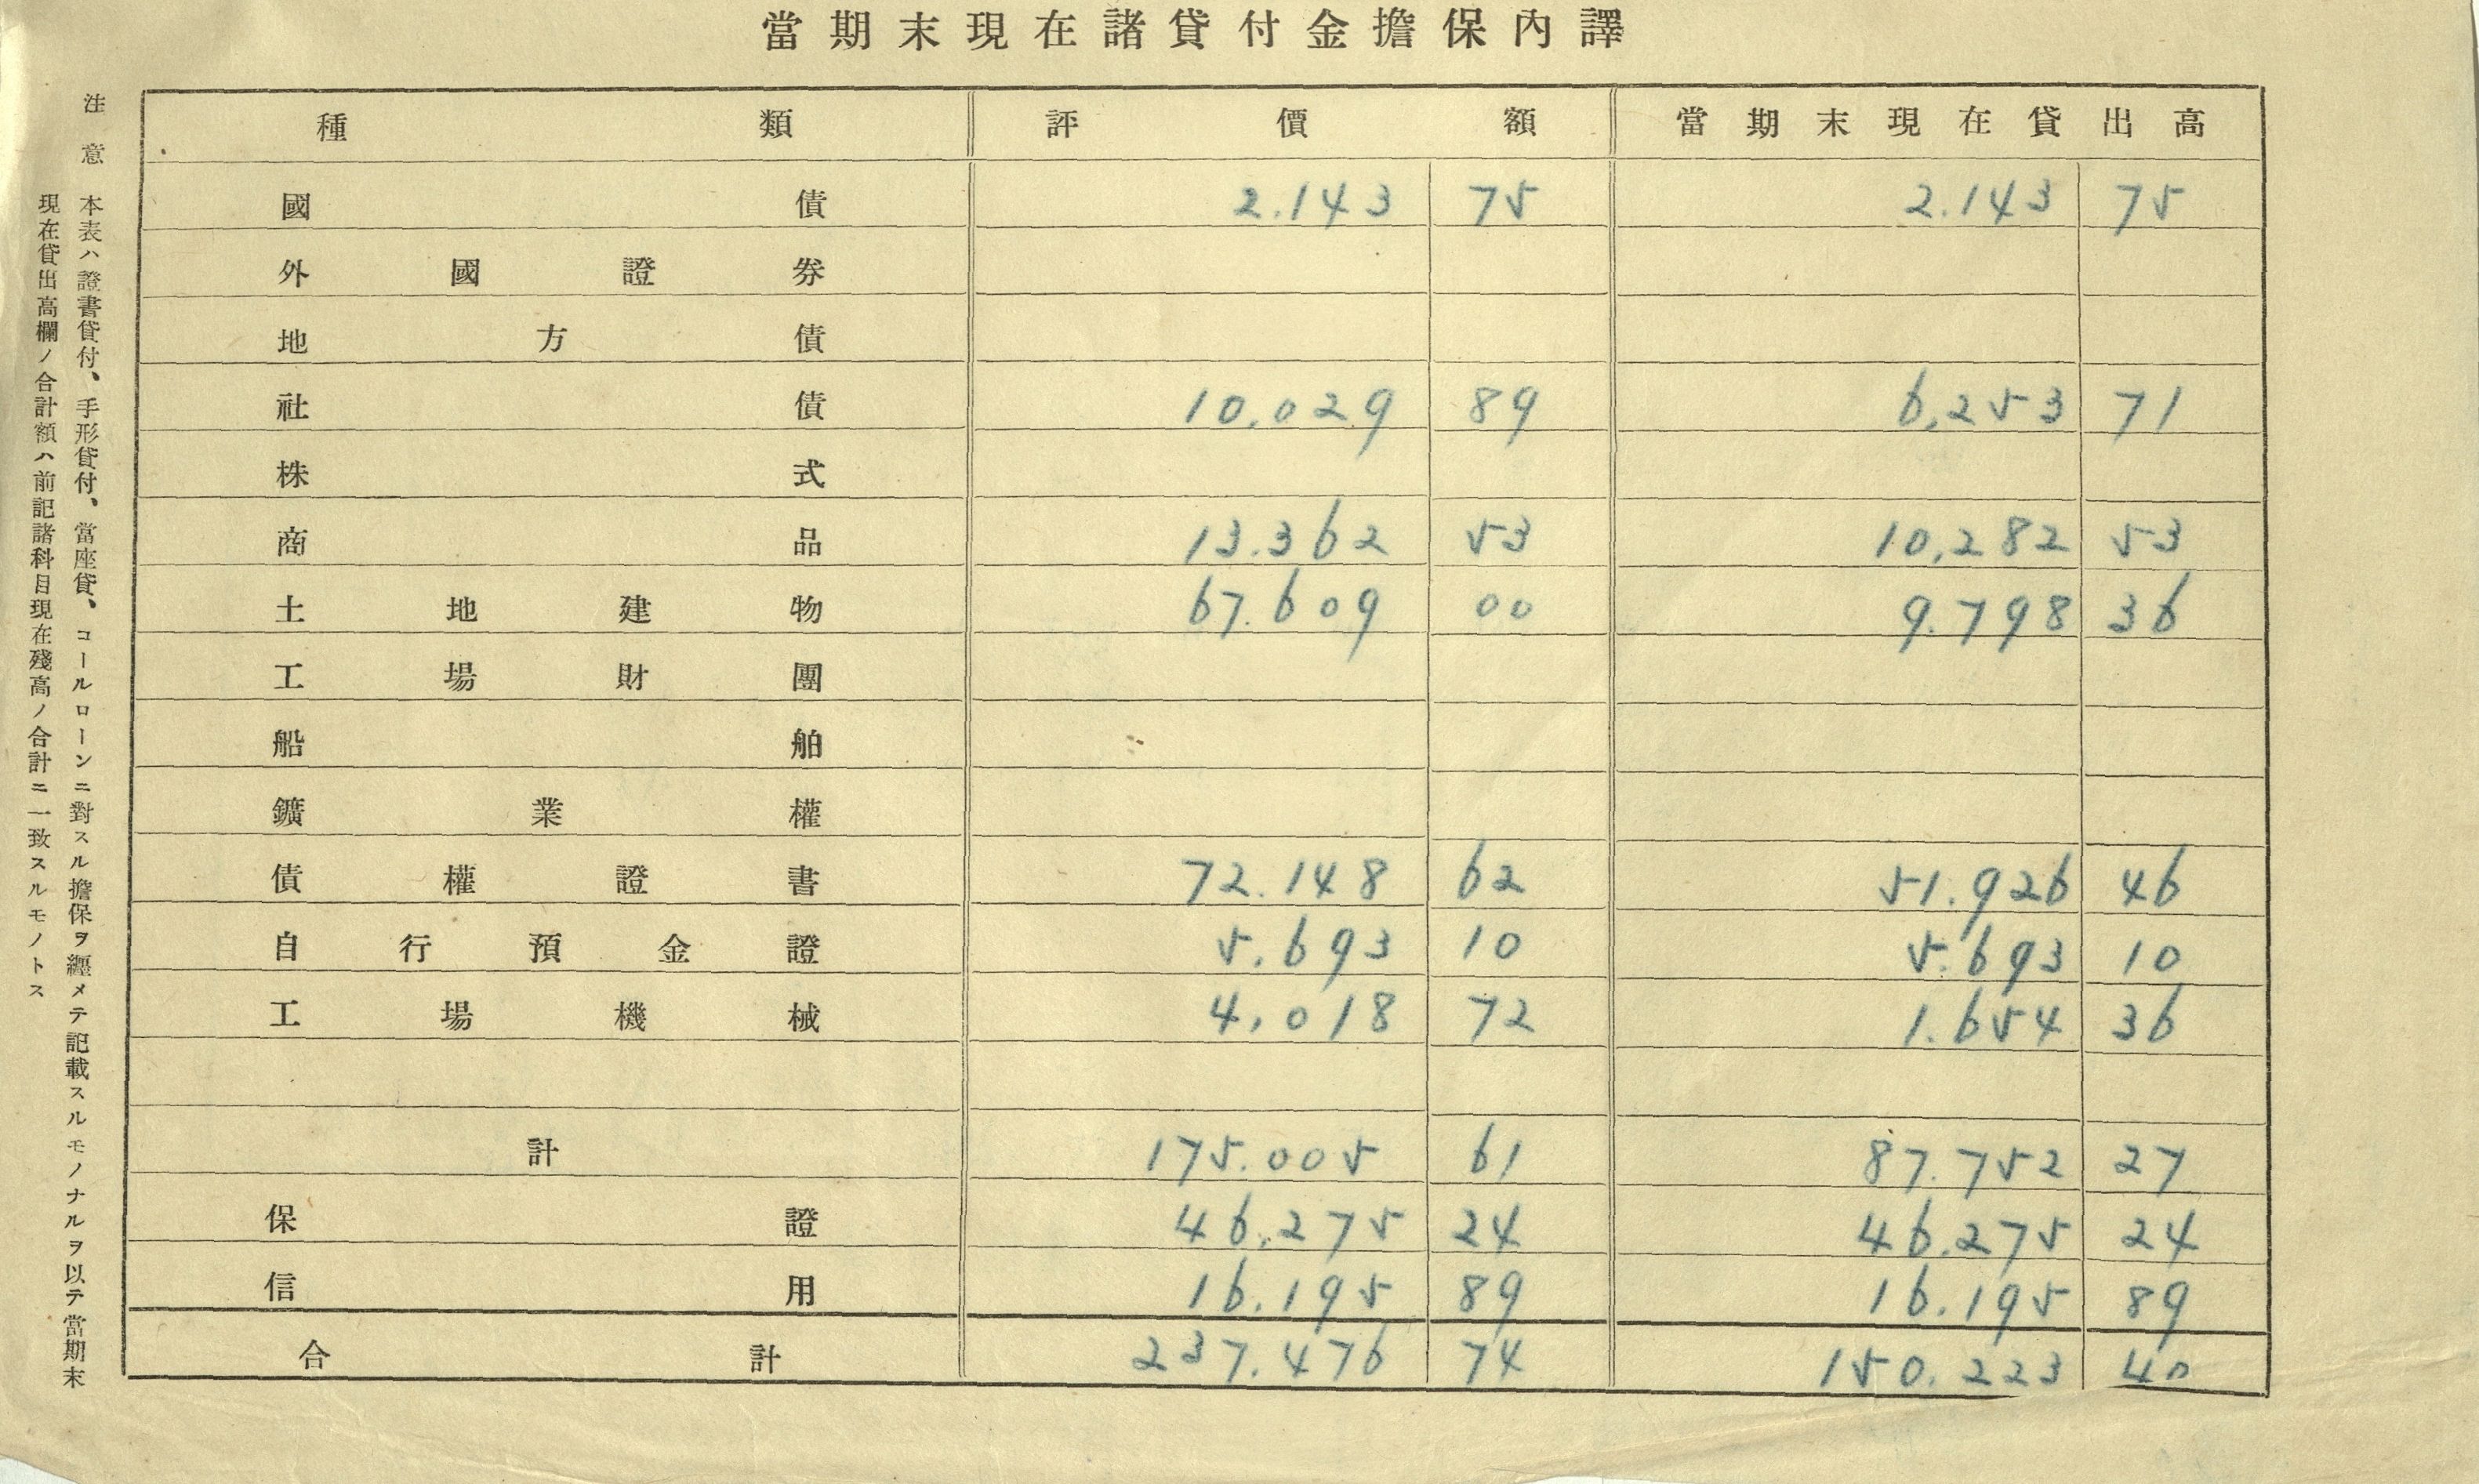 當期末現在諸貸付金擔保內譯
種類 評價額 當期末現在貸出高
國債 2.143 75 2.143 75
外國證券
地方債
社債 10,029 89 6,253 71
株式
商品 13.362 53 10,282 53
土地建物 67.609 00 9.798 36
工場財團
船舶
鑛業權
債權證書 72.148 62 51.926 46
自行預金證 5.693 10 5.693 10
工場機械 4,018 72 1.654 36
計 175.005 61 87.752 27
保證 46,275 24 46.275 24
信用 16.195 89 16.195 89
合計 237.476 74 150.223 40
注意 本表ハ證書貸付、手形貸付、當座貸、コールローンニ對スル擔保ヲ纒メテ記載スルモノナルヲ以テ當期末
現在貸出高欄ノ合計額ハ前記諸科目現在殘高ノ合計ニ一致スルモノトス